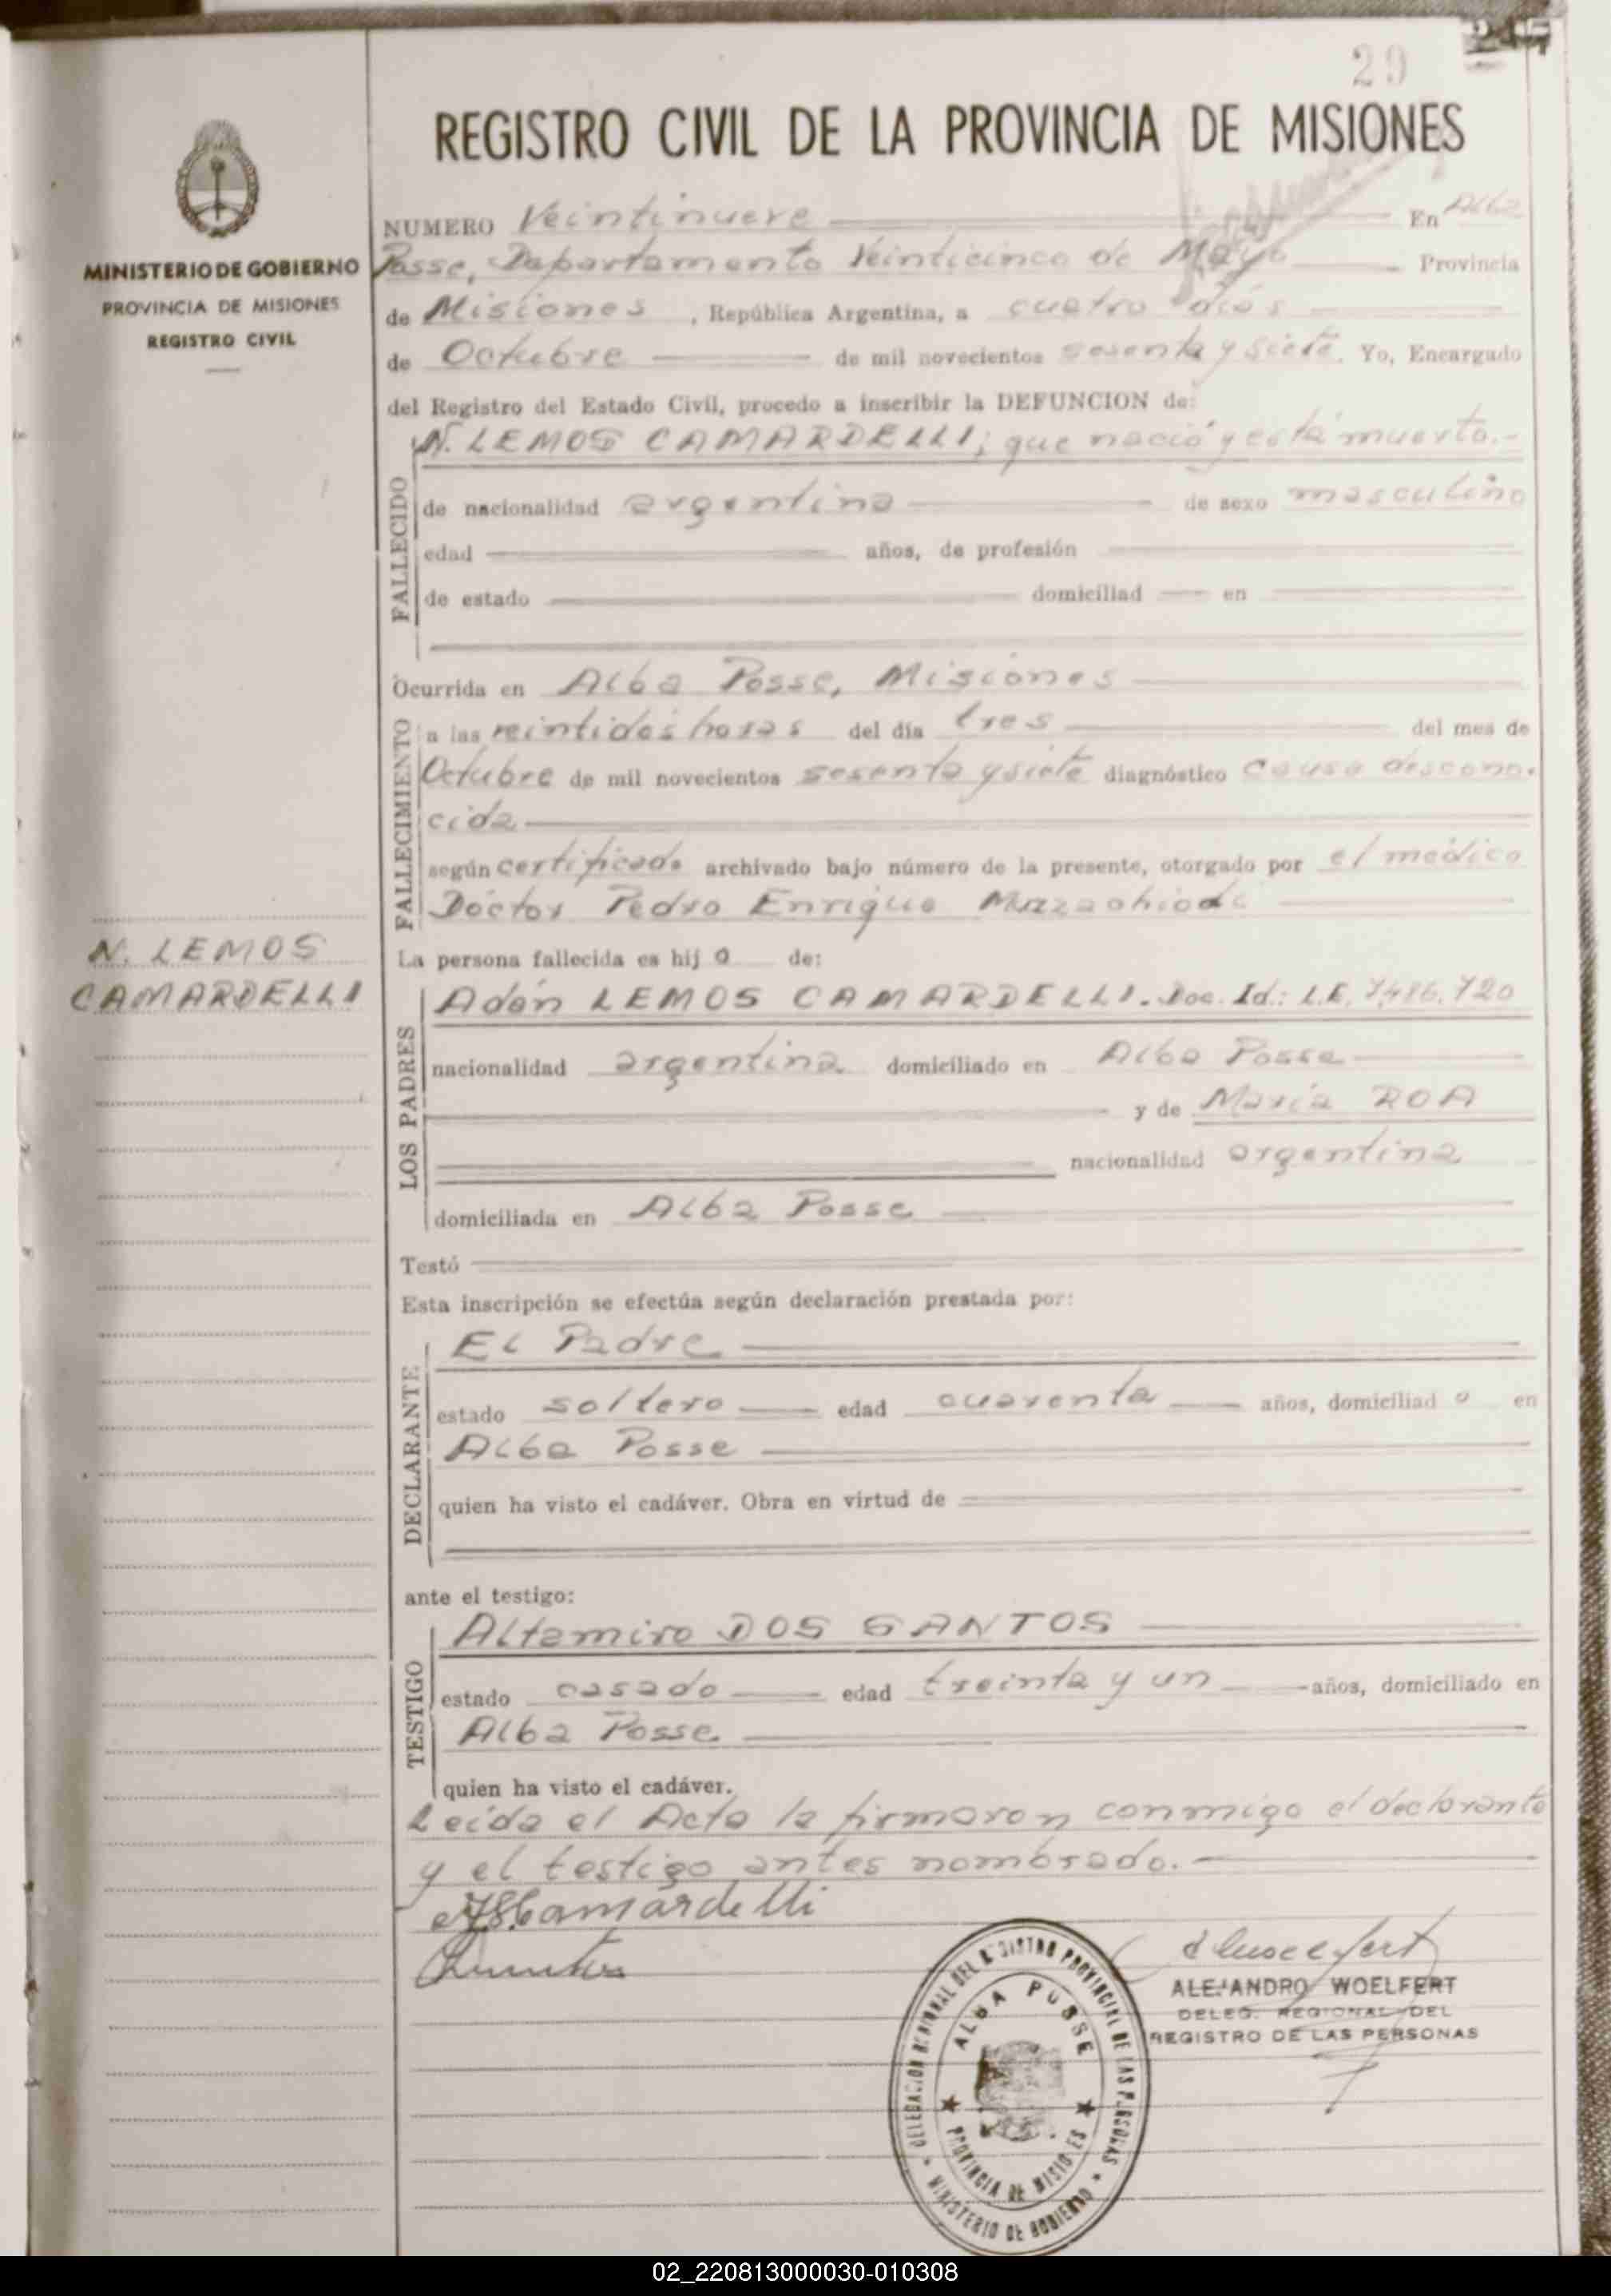 29
REGISTRO CIVIL DE LA PROVINCIA DE MISIONES
MINISTERIO DE GOBIERNO
PROVINCIA DE MISIONES
REGISTRO CIVIL
NUMERO Veintinueve En Alba
Posse, Departamento Veinticinco de Mayo Provincia
de Misiones, República Argentina, a cuatro días
de Octubre de mil novecientos sesenta y siete. Yo, Encargado
del Registro del Estado Civil, procedo a inscribir la DEFUNCION de:
FALLECIDO
N. LEMOS CAMARDELLI; que nació y está muerto.-
de nacionalidad argentina de sexo masculino
edad años, de profesión
de estado domiciliad en
Ocurrida en Alba Posse, Misiones
FALLECIMIENTO
a las veintidos horas del día tres del mes de
Octubre de mil novecientos sesenta y siete diagnóstico causa descono-
cida
según certificado archivado bajo número de la presente, otorgado por el médico
Doctor Pedro Enrique
N. LEMOS
CAMARDELLI
La persona fallecida es hijo de:
LOS PADRES
Adán LEMOS CAMARDELLI. Doc. Id.: L.E. 7.486.720
nacionalidad argentina domiciliado en Alba Posse
y de María ROA
nacionalidad argentina
domiciliada en Alba Posse
Testó
Esta inscripción se efectúa según declaración prestada por:
DECLARANTE
El Padre
estado soltero edad cuarenta años, domiciliado en
Alba Posse
quien ha visto el cadáver. Obra en virtud de
ante el testigo:
TESTIGO
Altamiro DOS SANTOS
estado casado edad treinta y un años, domiciliado en
Alba Posse
quien ha visto el cadáver.
Leída el Acta la firmaron conmigo el declarante
y el testigo antes nombrado.-
Camardelli
ALEJANDRO WOELFERT
DELEG. REGIONAL DEL
REGISTRO DE LAS PERSONAS
DELEGACION REGIONAL DEL REGISTRO PROVINCIAL DE LAS PERSONAS
MINISTERIO DE GOBIERNO
ALBA POSSE
PROVINCIA DE MISIONES
02_220813000030-010308